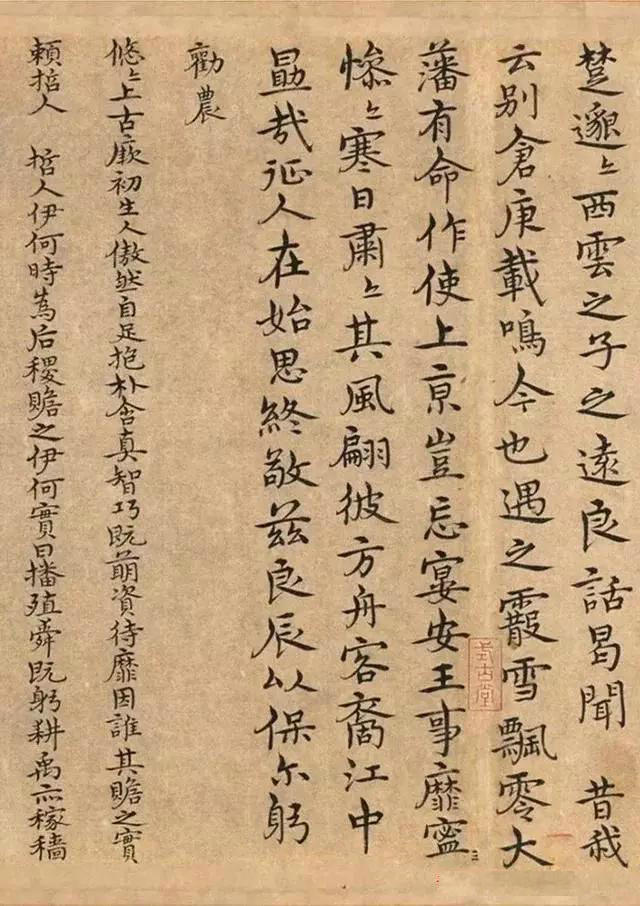 楚邈〻西雲之子之遠良話曷聞　昔我
云别倉庚載鳴今也遇之霰雪飄零大
藩有命作使上亰豈忘宴安王事靡寍
慘〻寒日肅〻其風翩彼方舟客裔江中
勗哉征人在始思終敬茲良辰以保尔躬
勸農
悠〻上古厥初生人傲然自足抱朴含真智巧既萌資待靡因誰其贍之實
賴哲人　哲人伊何時為后稷贍之伊何實曰播殖舜既躬耕禹亦稼穡
式古堂